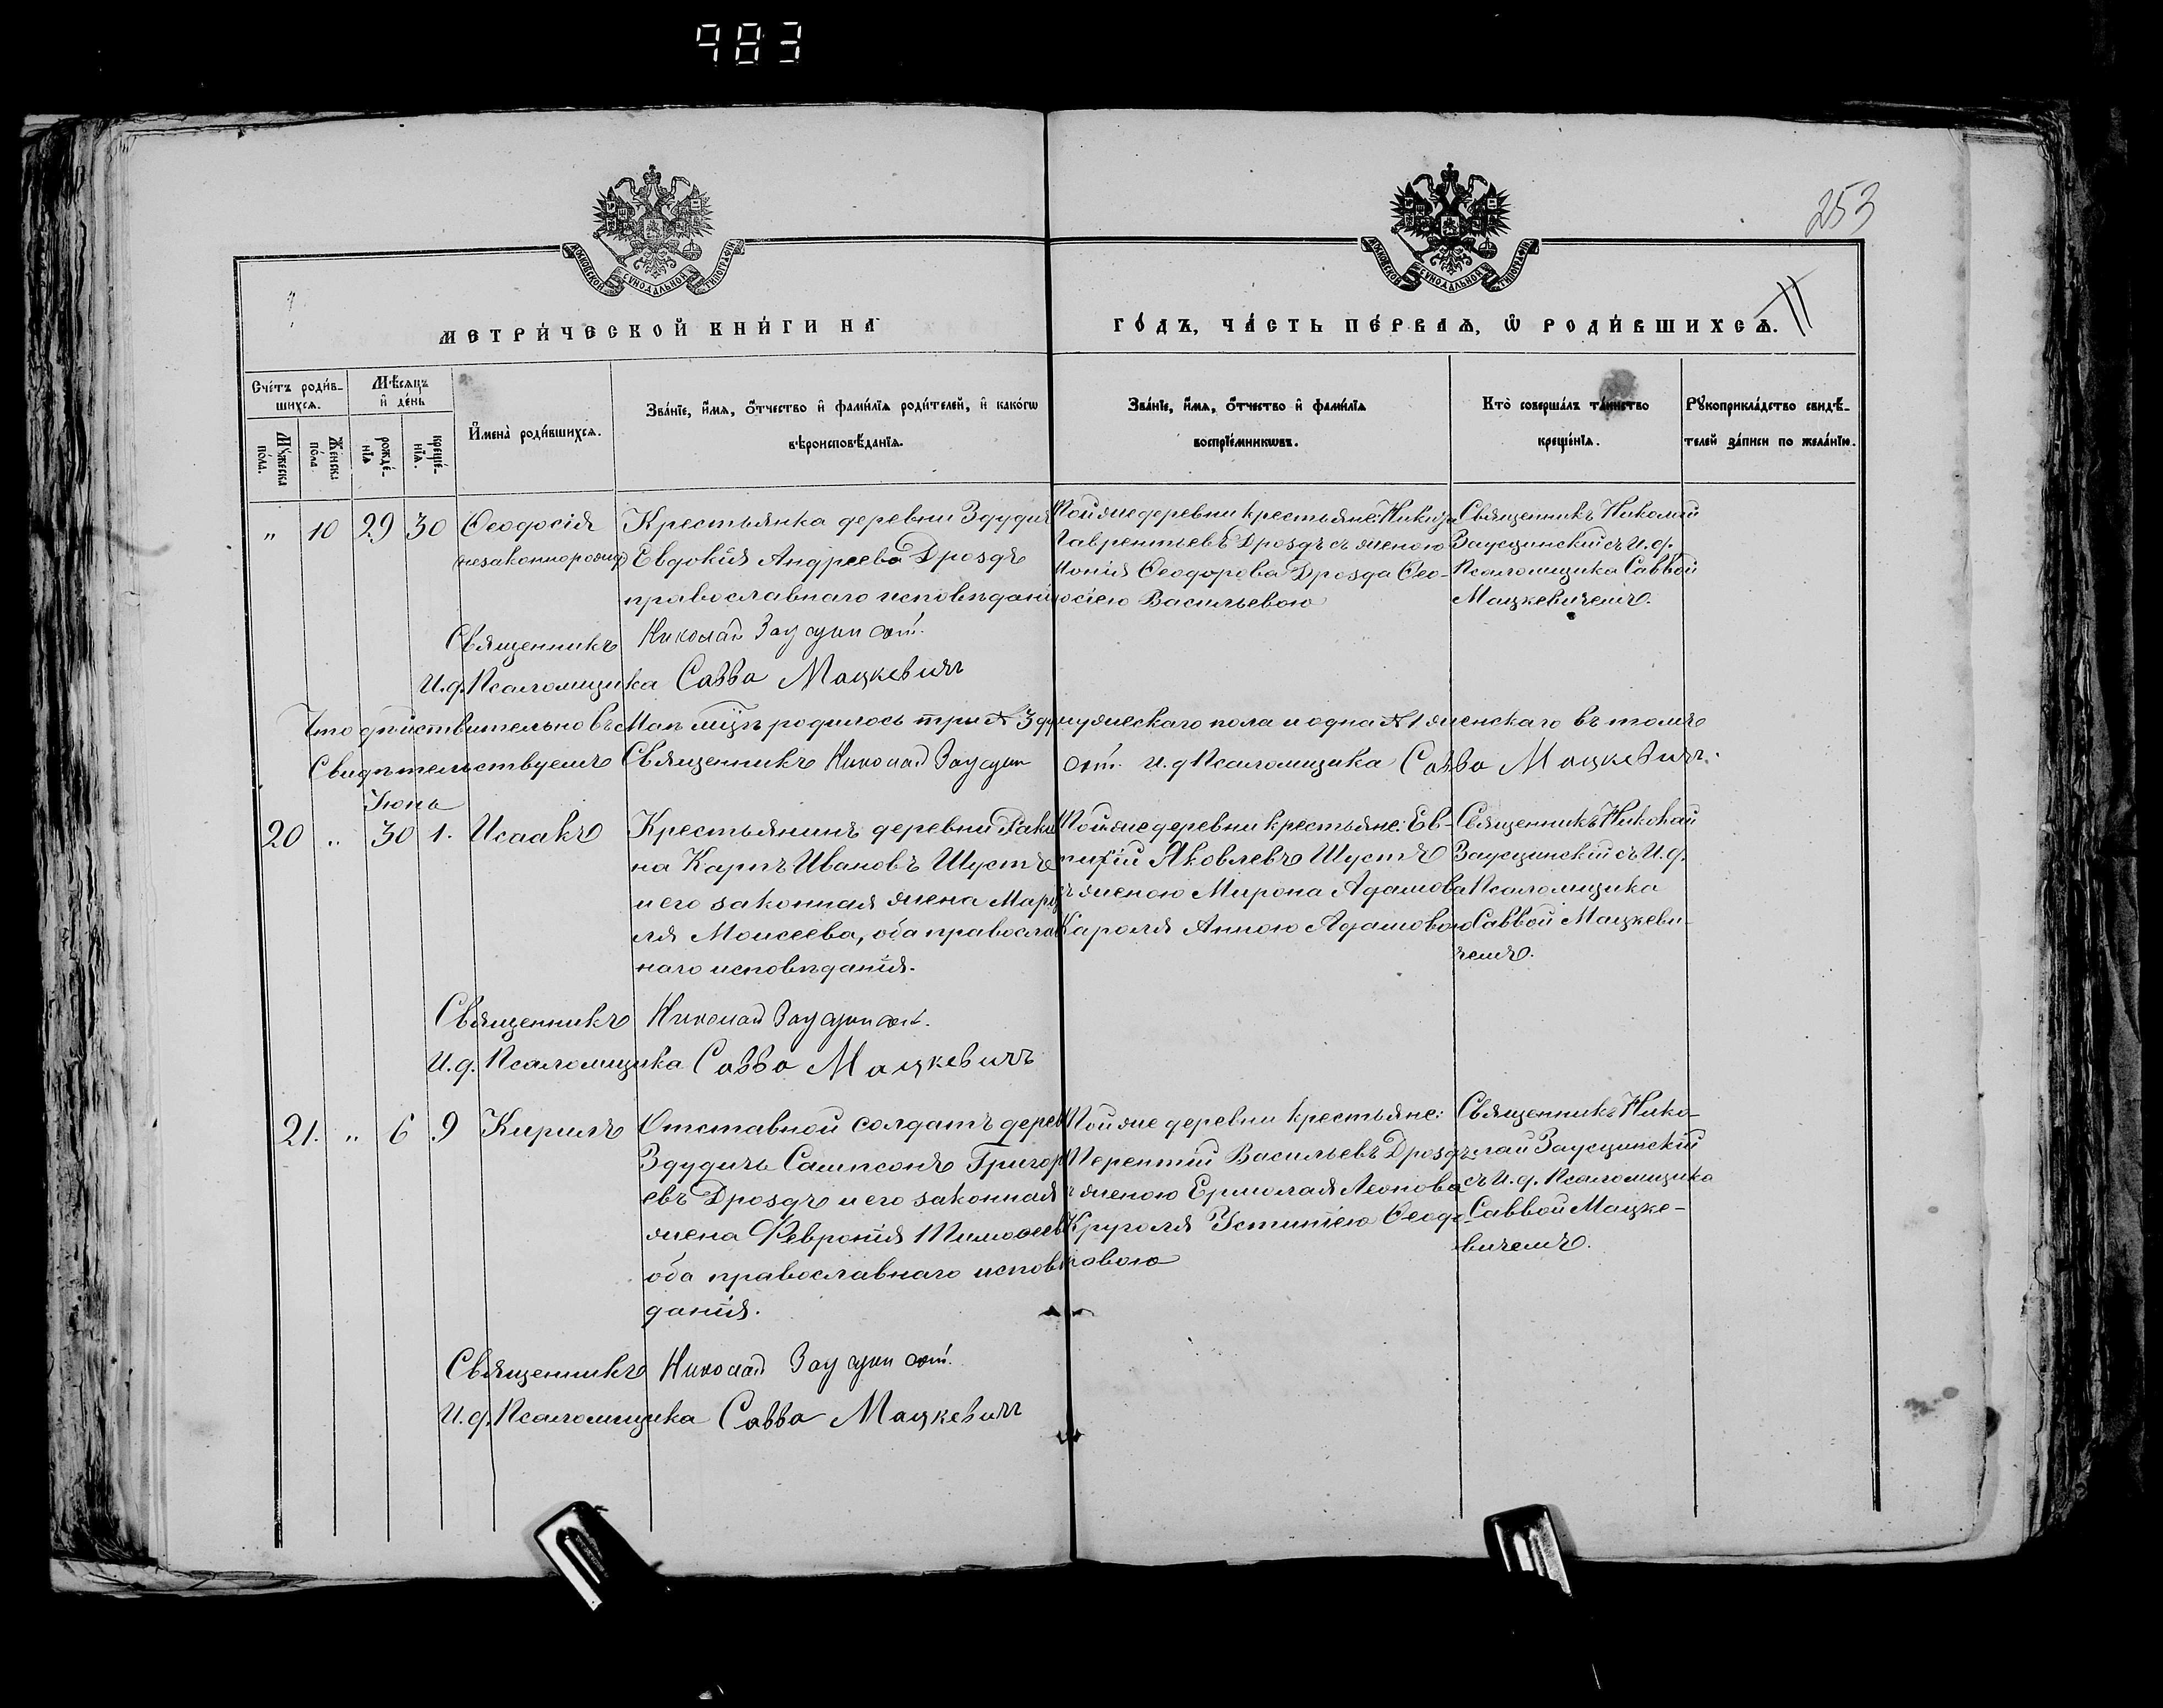 983
253
11
МОСКОВСКОЙ СѴНОДАЛЬНОЙ ТИПОГРАФІИ
МОСКОВСКОЙ СѴНОДАЛЬНОЙ ТИПОГРАФІИ
МЕТРИ́ЧЕСКОЙ КНИ́ГИ НА
ГО́ДЪ, ЧА́СТЬ ПЕ́РВАѦ, Ѡ РОДИ́ВШИХСѦ.
Сче́тъ роди́в-
шихсѧ.
Мѣсѧцъ
и де́нь
Мꙋжеска
по́ла.
Же́нска
по́ла
рожде́-
нїѧ
креще́-
нїѧ.
И҆мена̀ роди́вшихсѧ.
Зва́нїе, и҆́мѧ, ѻ҆́тчество и҆ фами́лїѧ роди́телей, и҆ како́гѡ
вѣроисповѣ́данїѧ.
Зва́нїе, и҆́мѧ, ѻ҆́тчество и҆ фами́лїѧ
воспрїе́мникѡвъ.
Кто̀ соверша́лъ та́инство
креще́нїѧ.
Рꙋкоприкла́дство свидѣ́-
телей за́писи по жела́нїю.
" 10 29 30 Ѳеодосія
незаконнорожд
Крестьянка деревни Здудич
Евдокія Андреева Дроздъ
православнаго исповѣдані
Той же деревни крестьяне: Никита
Лаврентьевъ Дроздъ съ женою
Ѳеодорова Дрозда Ѳео-
досіею Васильевою
Священникъ Николай
Заусцинскій съ И. д.
Псаломщика Саввой
Мацкевичемъ.
Священникъ Николай Заусцинскій.
И. д. Псаломщика Савва Мацкевичъ
Что дѣйствительно въ Маѣ мцѣ родилось три № 3 мужескаго пола и одна № 1 женскаго въ томъ
Свидѣтельствуемъ Священникъ Николай Заусцинскій. И. д Псаломщика Савва Мацкевичъ.
Іюнь
20 " 30 1. Исаакъ
Крестьянинъ деревни Раки
на Карпъ Ивановъ Шустъ
и его законная жена Мар
ля Моисеева, оба православ
наго исповѣданія.
Той же деревни крестьяне: Ев-
Яковлевъ Шустъ
женою Мирона Адамова
Кароля Анною Адамовою
Священникъ Николай
Заусцинскій съ И. д.
Псаломщика
Саввой Мацкеви-
чемъ.
Священникъ Николай Заусцинскій.
И. д. Псаломщика Савва Мацкевичъ
21. " 6 9 Кирилъ
Отставной солдатъ дерев
Здудичь Сампсонъ Григор
евъ Дроздъ и его законная
жена Февронія Тимоѳеев
оба православнаго исповѣ
данія.
Той же деревни крестьяне:
Терентій Васильевъ Дроздъ
женою Ермолая Леонова
Круголя Устиніею Ѳеодо-
ровою
Священникъ Нико-
лай Заусцинскій
съ И. д. Псаломщика
Саввой Мацке-
вичемъ.
Священникъ Николай Заусцинскій.
И. д. Псаломщика Савва Мацкевичъ